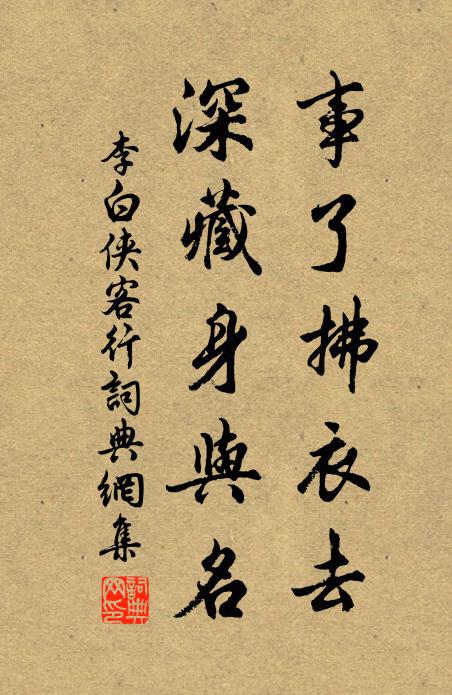 事了拂衣去
深藏身與名
李白俠客行詞典網集
詞典网印